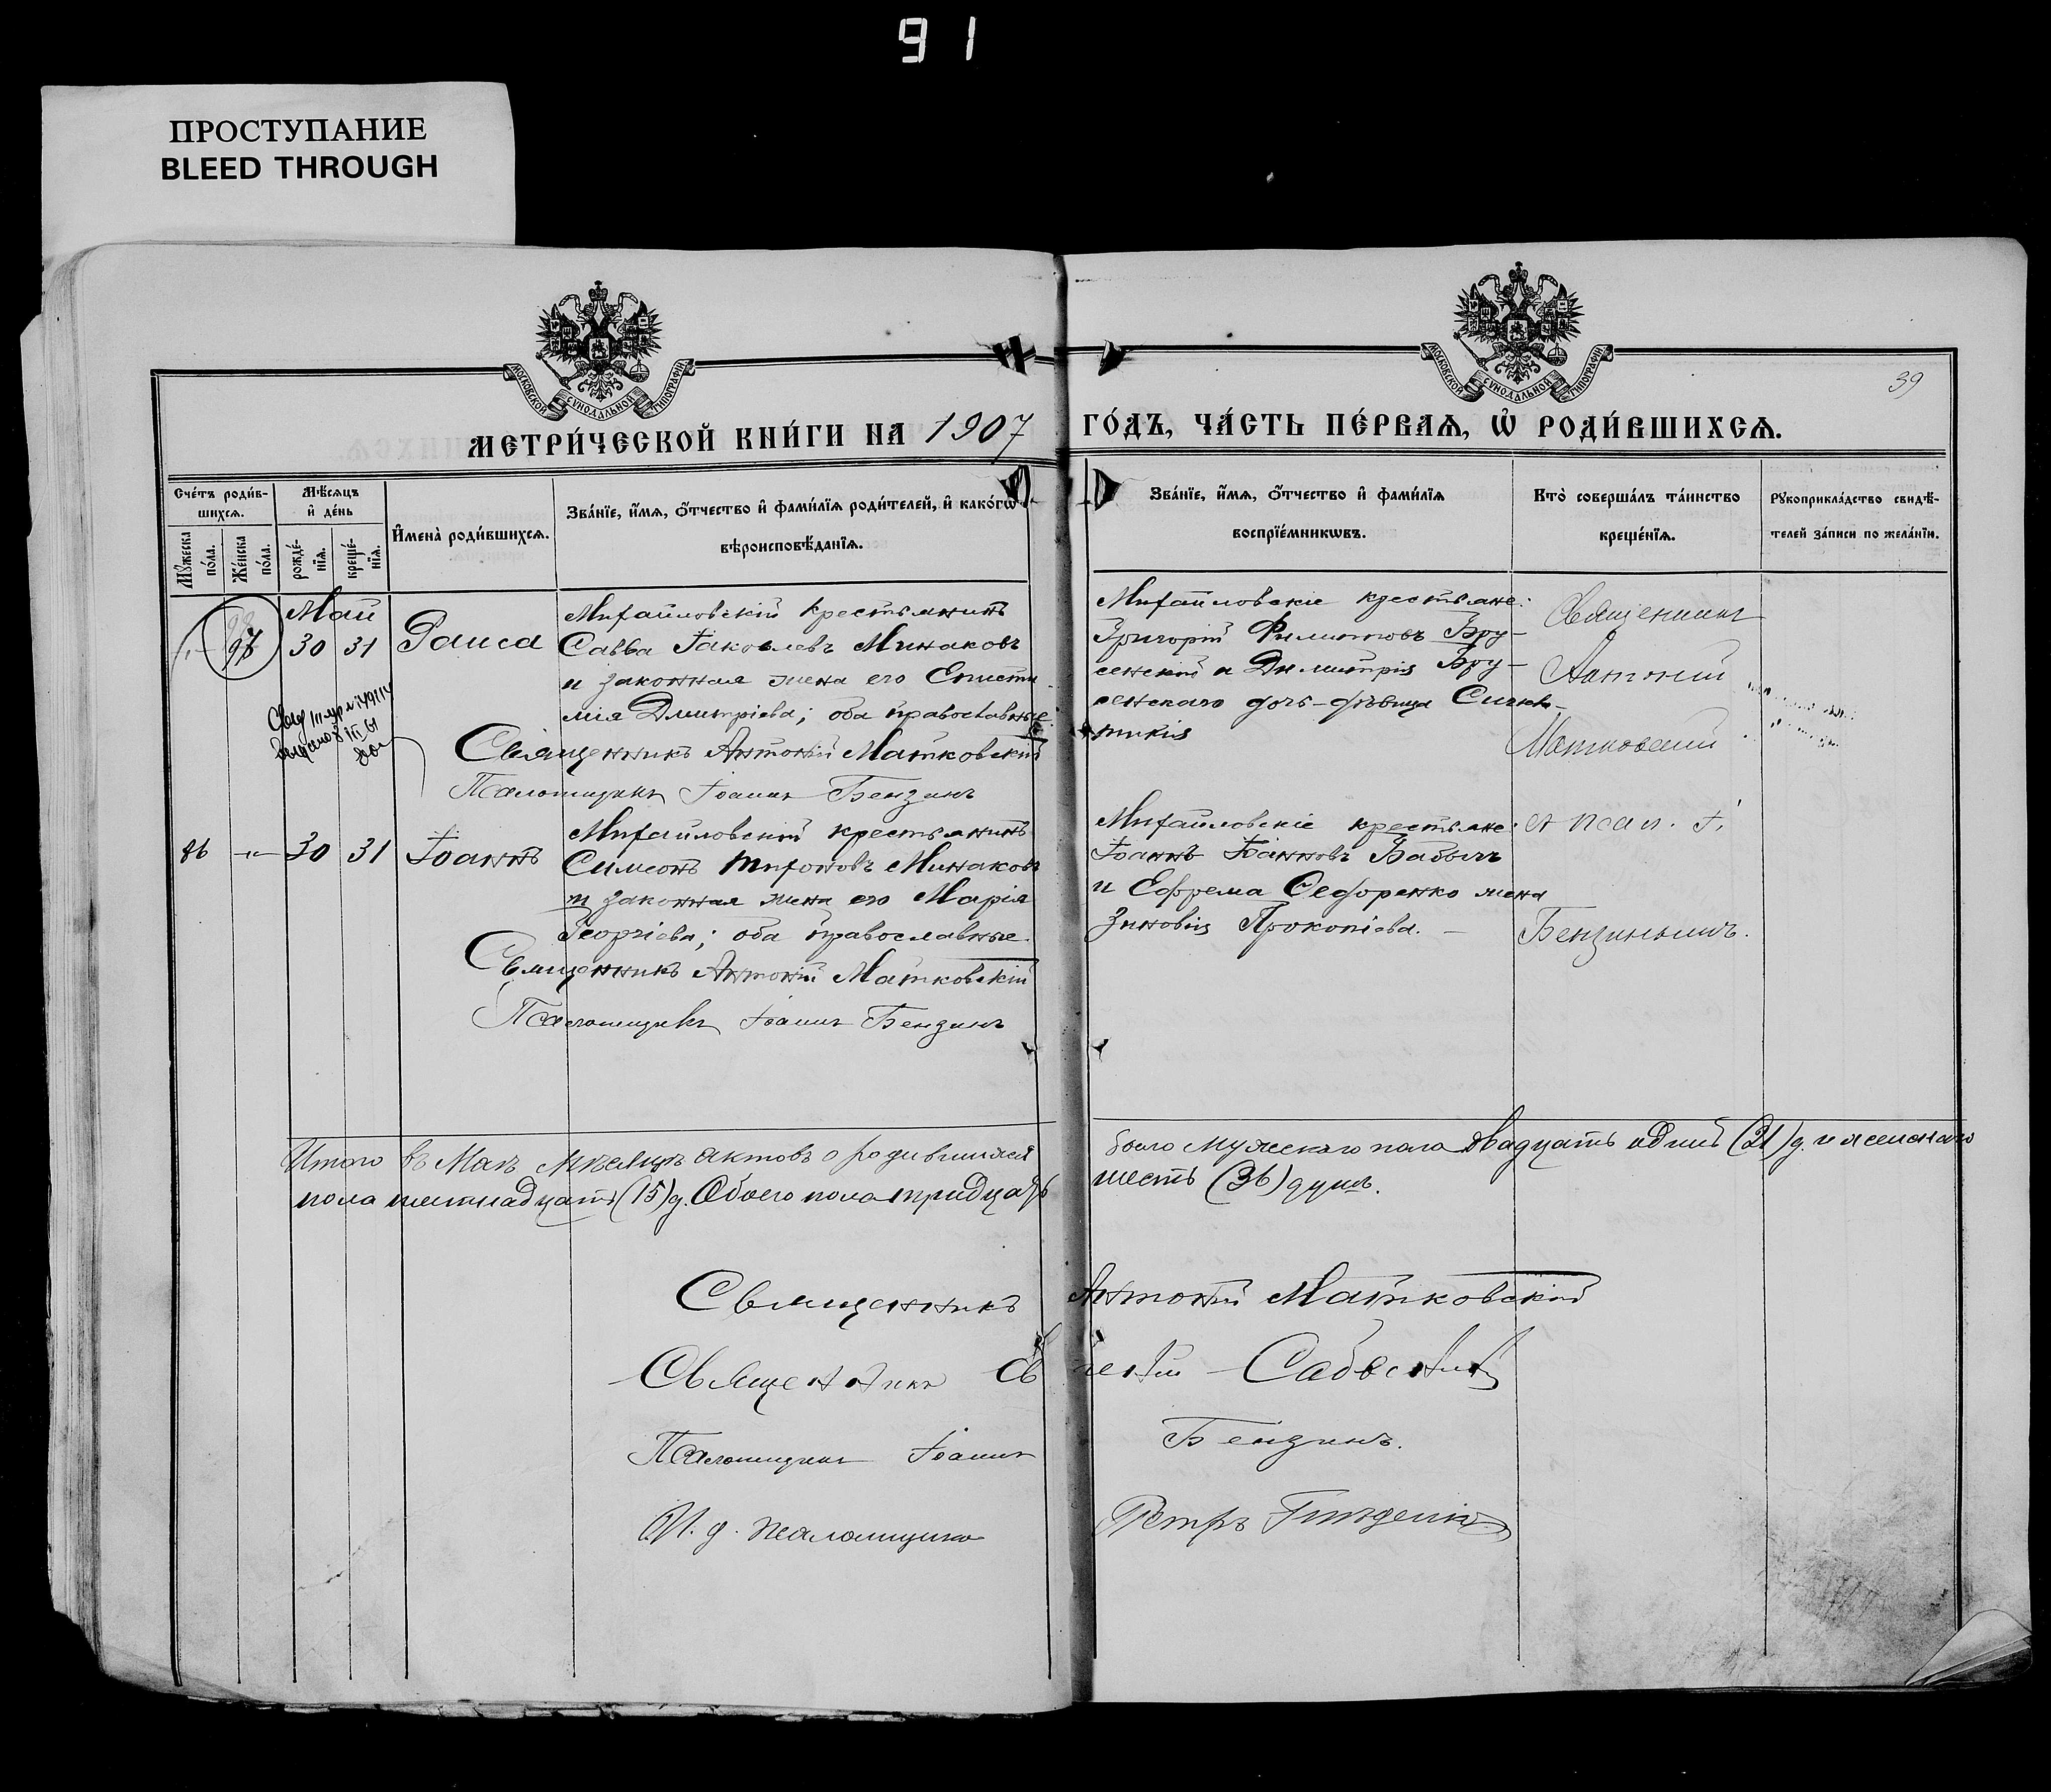 91
ПРОСТУПАНИЕ
BLEED THROUGH
МОСКОВСКОЙ СѴНОДАЛЬНОЙ ТИПОГРАФІИ
МОСКОВСКОЙ СѴНОДАЛЬНОЙ ТИПОГРАФІИ
39
МЕТРИ́ЧЕСКОЙ КНИ́ГИ НА 1907 ГО́ДЪ, ЧА́СТЬ ПЕ́РВАѦ, Ѡ҆ РОДИ́ВШИХСѦ.
Сче́тъ роди́в-
шихсѧ.
Мꙋ́жеска по́ла.
Же́нска по́ла.
Мѣ́сѧцъ и҆ де́нь
рожде́-нїѧ.
креще́-нїѧ.
И҆мена̀ роди́вшихсѧ.
Зва́нїе, и҆́мѧ, ѻ҆́тчество и҆ фами́лїѧ роди́телей, и҆ како́гѡ
вѣроисповѣ́данїѧ.
Зва́нїе, и҆́мѧ, ѻ҆́тчество и҆ фами́лїѧ
воспрїе́мникѡвъ.
Кто̀ соверша́лъ та́инство
креще́нїѧ.
Рꙋкоприкла́дство свидѣ́-
телей за́писи по жела́нїю.
Май
97 30 31 Раиса
Михайловскій крестьянинъ
Савва Іаковлевъ Минаковъ
и законная жена его Еписти-
мія Димитріева; оба православные.
Священникъ Антоній Матковскій
Псаломщикъ Іоаннъ Бензинъ
Михайловскіе крестьяне:
Григорій Филиповъ Бру-
сенскій и Димитрія Бру-
сенскаго дочь-дѣвица
Священникъ
Антоній
Матковскій
86 -"- 30 31 Іоаннъ
Михайловскій крестьянинъ
Симеонъ Тихоновъ Минаковъ
и законная жена его Марія
Георгіева; оба православные.
Священникъ Антоній Матковскій
Псаломщикъ Іоаннъ Бензинъ
Михайловскіе крестьяне:
Іоаннъ Іоанновъ Бабичъ
и Ефрема Ѳедоренко жена
Зиновія Прокопіева.
съ псал. І.
Бензинымъ.
Итого въ Маѣ мѣсяцѣ актовъ о родившихся было мужескаго пола двадцать одинъ (21) д. и женскаго
пола пятнадцать (15) д. Обоего пола тридцать шесть (36) душъ.
Священникъ Антоній Матковскій
Священникъ
Псаломщикъ Іоаннъ Бензинъ.
И. д. псаломщика Петръ